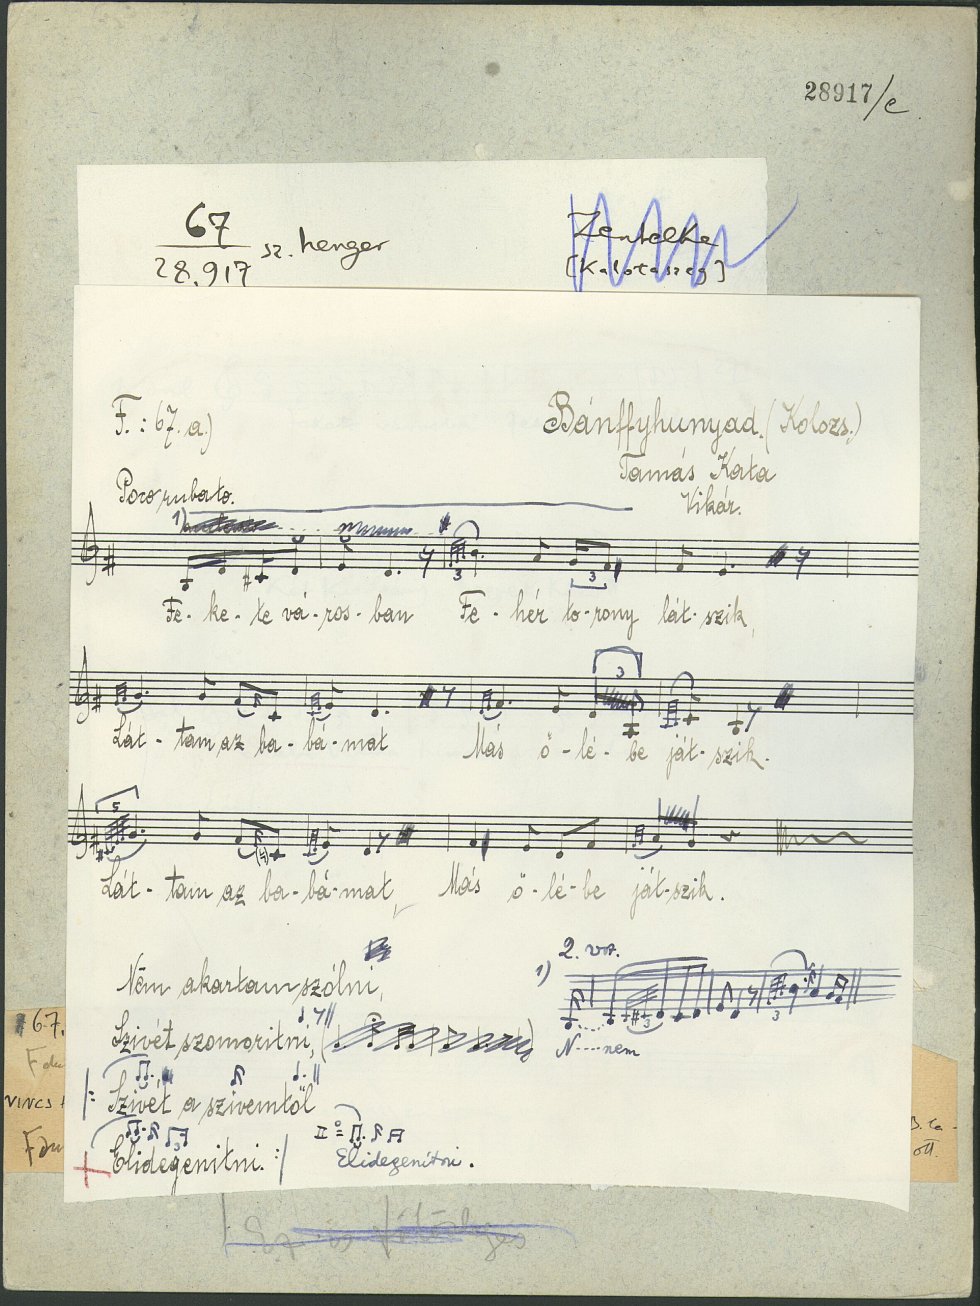 28917/c
67
28.917 sz. henger
Zentelke
(Kalotaszeg)
F.: 67. a.)
Bánffyhunyad. (Kolozs.)
Tamás Kata
Vikár.
Poco rubato.
1)
3
3
Fe - ke - te vá - ros - ban Fe - hér to - rony lát - szik,
3
Lát - tam az ba - bá - mat Más ö - lé - be ját - szik.
5
Lát - tam az ba - bá - mat, Más ö - lé - be ját - szik.
2. vsz.
1)
3
3
N----nem
Nēm akartam szólni,
Szivét szomoritni,
Szivét a szivemtől
3
Elidegenitni.
II º =
Elidegenitni.
67.
VINCS